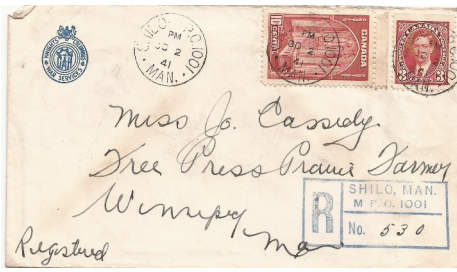 KNIGHTS OF COLUMBUS
WAR SERVICES
SHILO M.P.O. 1001
PM
JO 2
41
MAN.
10 CENTS
CANADA
PM
JO 2
41
1001
3
3
MAN.
Miss Jo. Cassidy.
Free Press Prairie Farmer
Winnipeg
Man
Registered
R
SHILO, MAN.
M P. O. 1001
No. 530